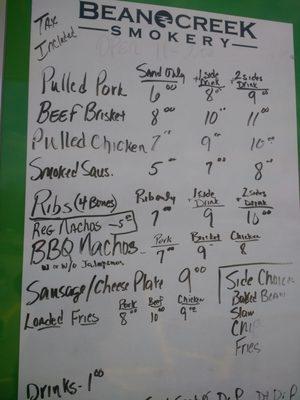 Tax
Included
BEAN CREEK
SMOKERY
Sand Only +1 side Drink +2 sides Drink
Pulled Pork 6 00 8 00 9 00
Beef Brisket 8 00 10 11 00
Pulled Chicken 7 9 10
Smoked Saus. 5 00 7 00 8 00
Ribs (4 Bones) Rib only +1 side Drink +2 sides Drink
7 00 9 10 00
Reg Nachos - 5
BBQ Nachos Pork Brisket Chicken
w or w/o Jalapenos 7 00 9 8
Sausage/Cheese Plate 9 00
Loaded Fries Pork Beef Chicken
8 00 10 9
Side Choices
Baked Beans
Slaw
Chip
Fries
Drinks - 1 00